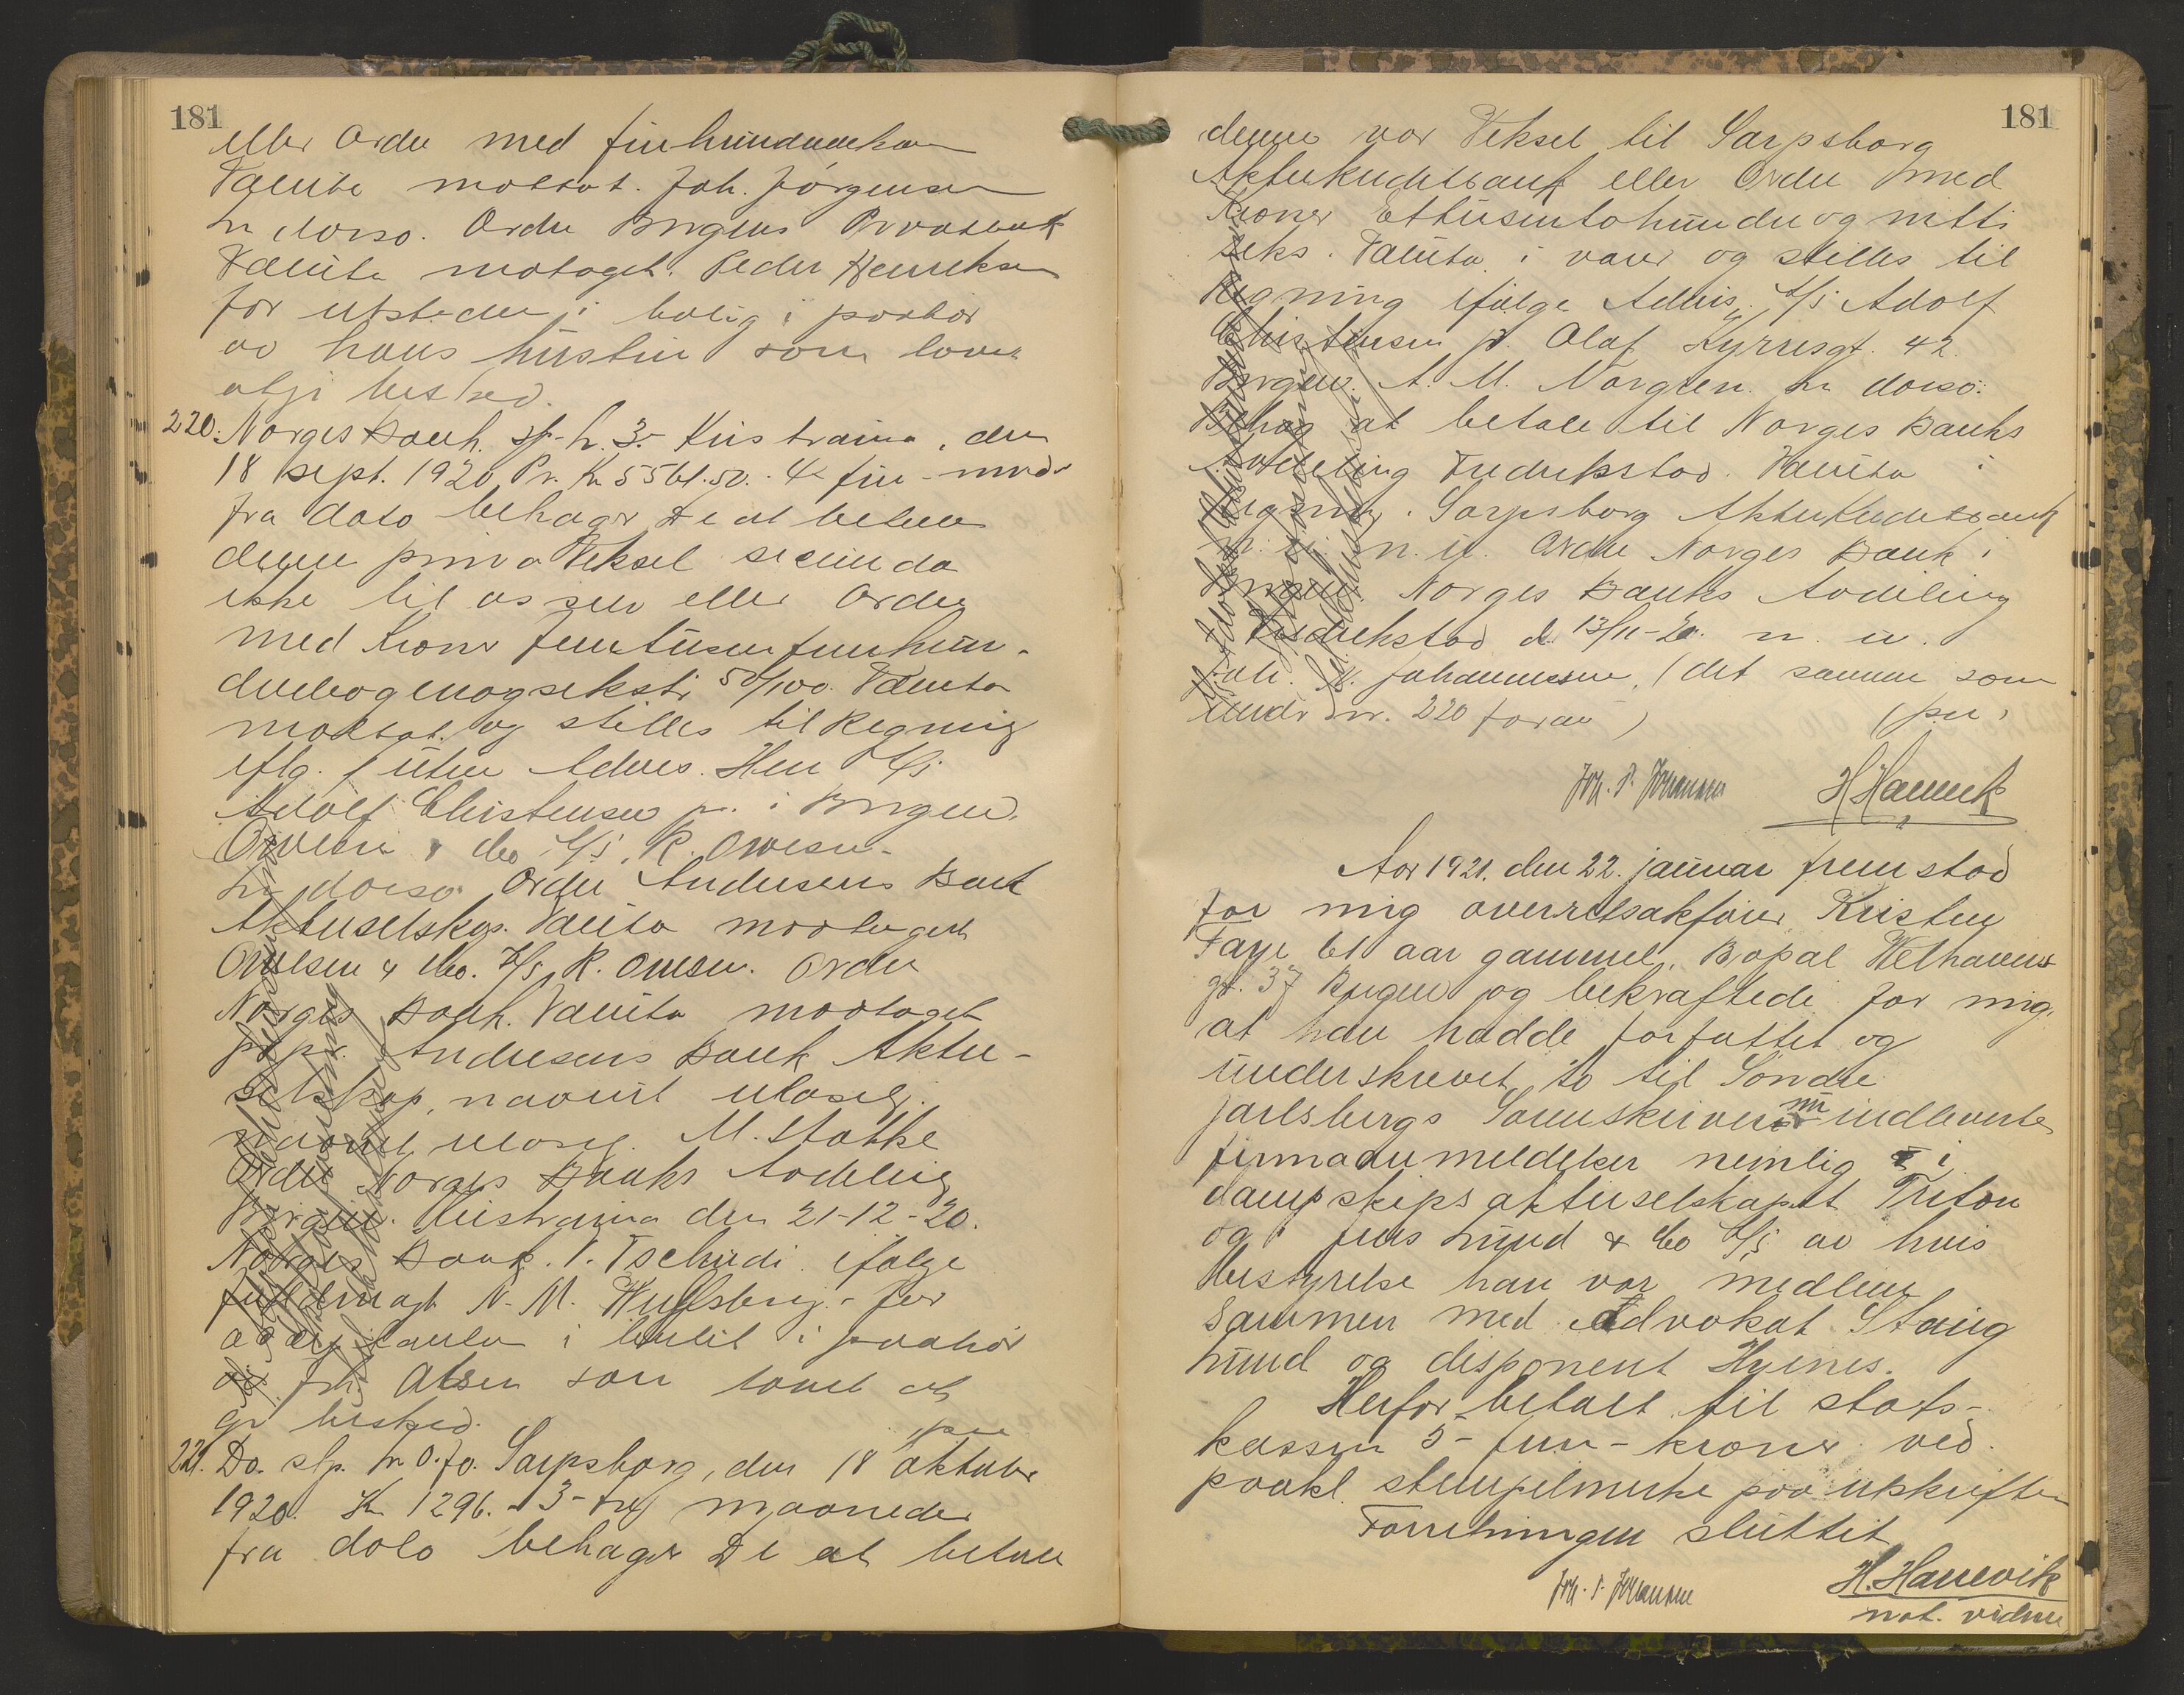 181
eller Ordre med firehundredekroner
Valuta mottat. Joh. Jörgensen
In dorso. Ordre Bergens Privatbank
Valuta motaget. Peder Henriksen
for utstederen i bolig i paahör
av hans hustru som lovet
atgi besked.
220. Norges Bank. sp. h. 3.- Kristiania, den
18 sept. 1920 Pr. Kr 5561.50. - 4 fire - mndr
fra dato behager De at betale
denne prima Veksel secunda
ikke til os selv eller Ordre
med Kroner femtusenfemhun-
dredeogenogseksti 50/100. Valuta
mottat og stilles til Regning
iflg. / uten Advis. Herr A/S
Adolf Christensen pr. i Bergen.
Owesen & Co A/S, R. Owesen.
In dorso. Ordre Andresens Bank
Aktieselskap. Valuta mottaget
Owesen & Co. A/S, R. Owesen. Ordre
Norges Bank. Valuta mottaget
pr. pr. Andresens Bank Aktie-
selskap, navnet ulæselig.
navnet ulæselig. M. Stotke
Ordre Norges Banks Avdeling
Bergen. Kristiania den 21-12-20.
Norges Bank. P. Tschudi ifølge
fuldmagt N. M. Wulfsberg.- for
acceptanten i butik i paahör
av Joh. Olsen som lovet at
gi besked.
221. Do. sp. h 0.70. Sarpsborg, den 18 oktober
1920. Kr 1296. - 3 - tre maaneder
fra dato behager De at betale
181
denne vor Veksel til Sarpsborg
Aktiekreditbank eller Ordre med
Kroner Ettusentohundreognitti
seks. Valuta i varer og stilles til
Regning ifølge Advis. A/S Adolf
Christensen pr. Olaf Kyrresgt. 42.
Bergen. A. M. Norgren. In dorso:
Behag at betale til Norges Banks
Avdeling Fredrikstad. Valuta i
Regning. Sarpsborg Aktiekreditbank
n. u. n. u. Ordre Norges Bank i
Bergen. Norges Banks Avdeling
Fredrikstad d. 13/11-20. n. u.
Joh. N. Johannessen, (det samme som
under nr. 220 foran)
Joh. P. Johannessen H Hanevik
Aar 1921. den 22. januar fremstod
for mig overretsakfører Kristen
Faye 61 aar gammel, Bopæl Welhavens
gt. 37 Bergen og bekræftede for mig
at han hadde forfattet og
underskrevet to til Söndre
Jarlsbergs Sorenskriveri indleverte
firmaanmeldelser nemlig i
dampskipsaktieselskapet Triton
og i Jens Lund & Co A/S av hvis
Bestyrelse han var medlem
sammen med Advokat Stang
Lund og disponent Hyenes.
Herfor betalt til stats-
kassen 5 - fem - kroner ved
paakl. stempelmerke paa utskriften
Forretningen sluttet
Joh. P. Johannessen H. Hanevik
not. vidne